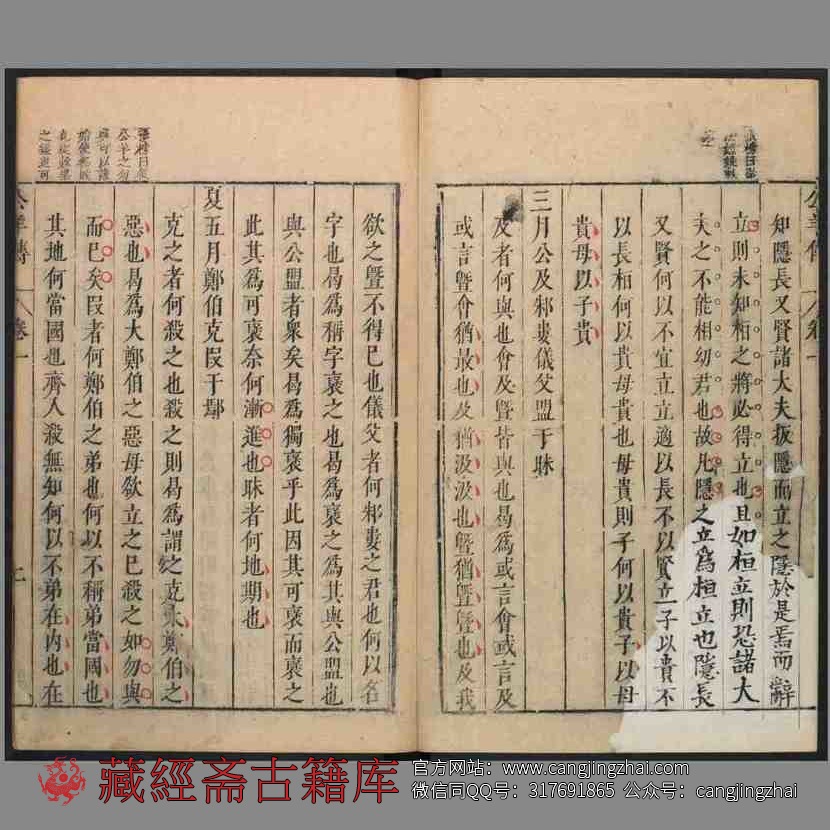 知隱長又賢諸大夫扳隱而立之隱於是焉而辭
立則未知桓之將必得立也且如桓立則恐諸大
夫之不能相幼君也故凡隱之立為桓立也隱長
又賢何以不宜立立適以長不以賢立子以貴不
以長桓何以貴母貴也母貴則子何以貴子以母
貴母以子貴
三月公及邾婁儀父盟于眜
及者何與也會及曁皆與也曷為或言會或言及
或言曁會猶最也及猶汲汲也曁猶曁曁也及我
欲之曁不得已也儀父者何邾婁之君也何以名
字也曷為稱字褒之也曷為褒之為其與公盟也
與公盟者衆矣曷為獨褒乎此因其可褒而褒之
此其為可褒奈何漸進也眜者何地期也
夏五月鄭伯克段于鄢
克之者何殺之也殺之則曷為謂之克大鄭伯之
惡也曷為大鄭伯之惡母欲立之已殺之如勿與
而已矣段者何鄭伯之弟也何以不稱弟當國也
其地何當國也齊人殺無知何以不地在内也在
公羊傳
卷一
七
藏經斋古籍库
官方网站：www.cangjingzhai.com
微信同QQ号：317691865 公众号：cangjingzhai